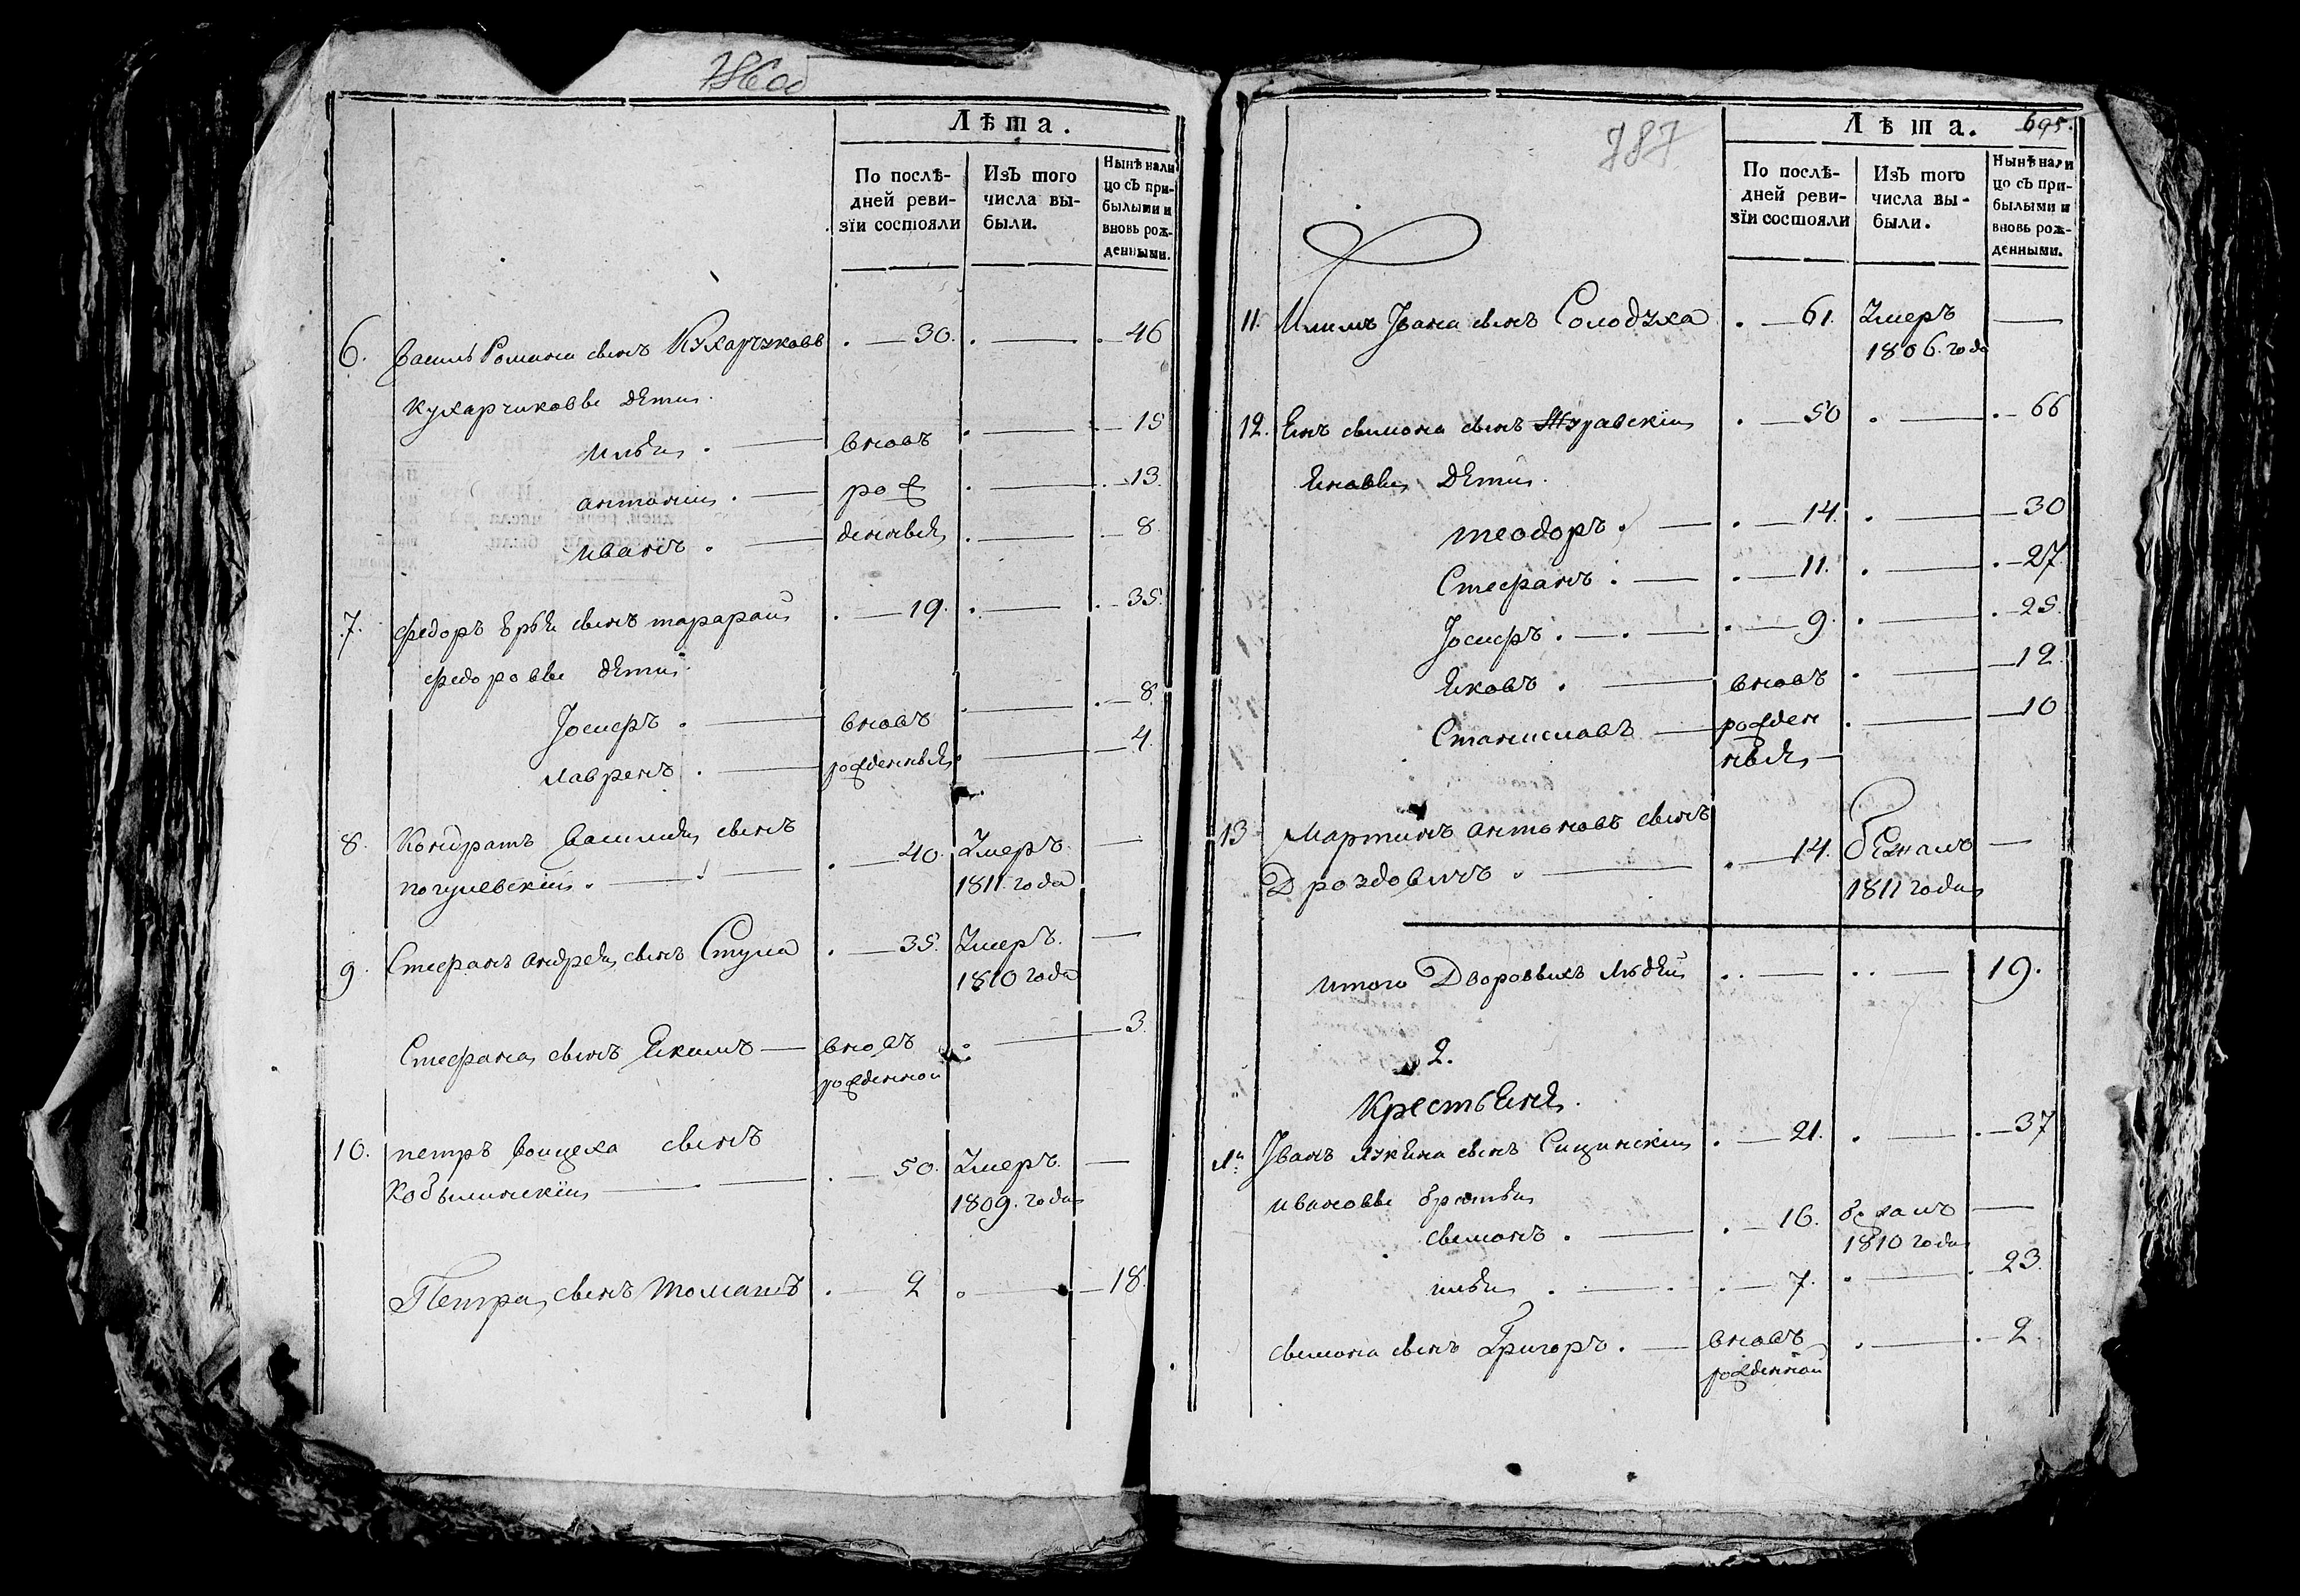 786 об
Лѣта.
По послѣдней ревизіи состояли
Изъ того числа выбыли.
Нынѣ налицо съ прибылыми и вновь рожденными.
6. Василь Романа сынъ Кухарчуковъ . — 30. . — . — 46
Кухарчиковы дети.
Илья . — вновъ . — . — 15
антоній . — рож . — . — 13.
иванъ . —денныя . — . — 8.
7. федоръ Юрья сынъ тарарай . — 19. . — . — 35.
федоровы дети.
Іосифъ . — вновъ . — . — 8.
лавренъ . — рожденныя . — — 4.
8. Кондратъ Василья сынъ
погулевскій . — . — . — 40. Умеръ —
1811. года
9. Стефанъ андрея сынъ Стула . — 35. Умеръ. —
1810 года
Стефана сынъ Якимъ — вновъ . — 3.
рожденной
10. петръ Войцеха сынъ
Кобылинскій — — . — 50. Умеръ. —
1809. года
Петра сынъ Томашъ . — 2 . — . — 18.
787
Лѣта. 695.
По послѣдней ревизіи состояли
Изъ того числа выбыли.
Нынѣ налицо съ прибылыми и вновь рожденными.
11. Івана сынъ Солодуха . — 61. Умеръ —
1806. года
12. Янъ сымона сынъ Журавскій . — 50 . — . — 66
Яновы дети.
теодоръ . — . — 14. . — — 30
Стефанъ . — . — 11. . — . — 27.
Іосифъ . — . — . — 9. . — . — 25.
Яковъ . — вновъ . — — 12.
Станиславъ — рожден . — — 10
ныя —
13 Мартинъ антоновъ сынъ
Дроздовичъ . — . — 14. бежалъ —
1811 года
итого Дворовыхъ людей . . — . . — 19.
2.
Крестьяня.
1й Іванъ лукьяна сынъ Сицинскій . — 21. . — . — 37
ивановы братья
сымонъ . — . — 16. бежалъ —
1810 года
илья . — . — 7. . — . 23.
сымона сынъ Григоръ . — вновъ . — . — 2.
рожденной